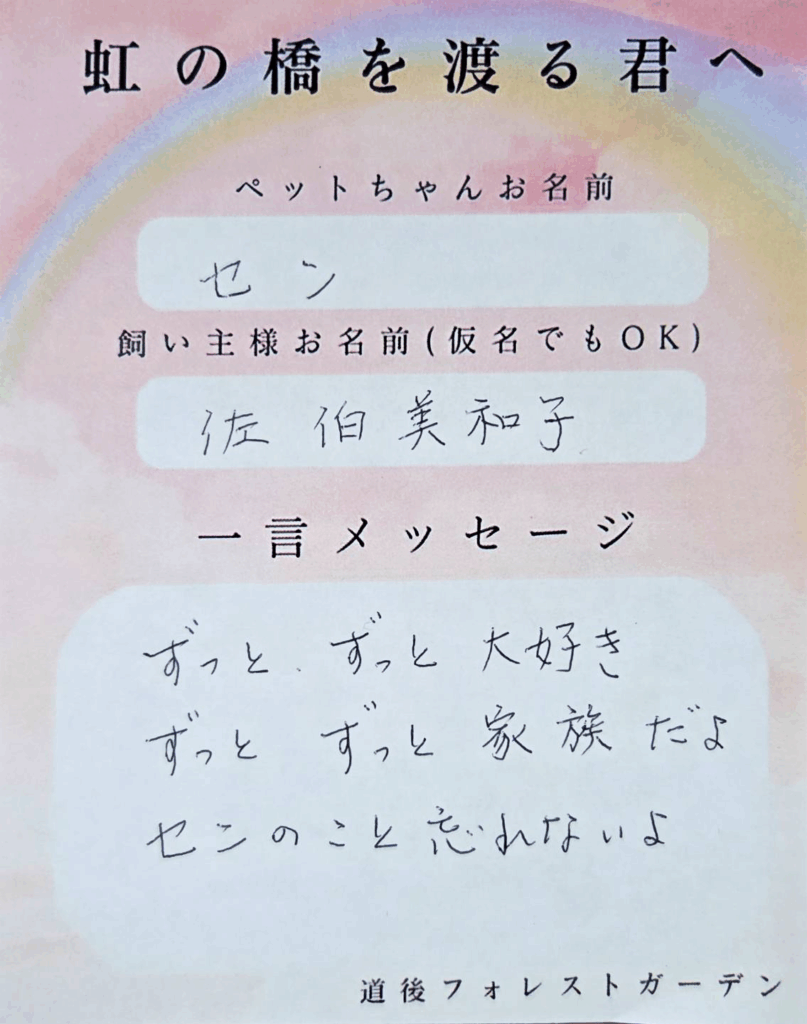 虹の橋を渡る君へ
ペットちゃんお名前
セン
飼い主様お名前(仮名でもOK)
佐伯美和子
一言メッセージ
ずっと、ずっと大好き
ずっと ずっと家族だよ
センのこと忘れないよ
道後フォレストガーデン